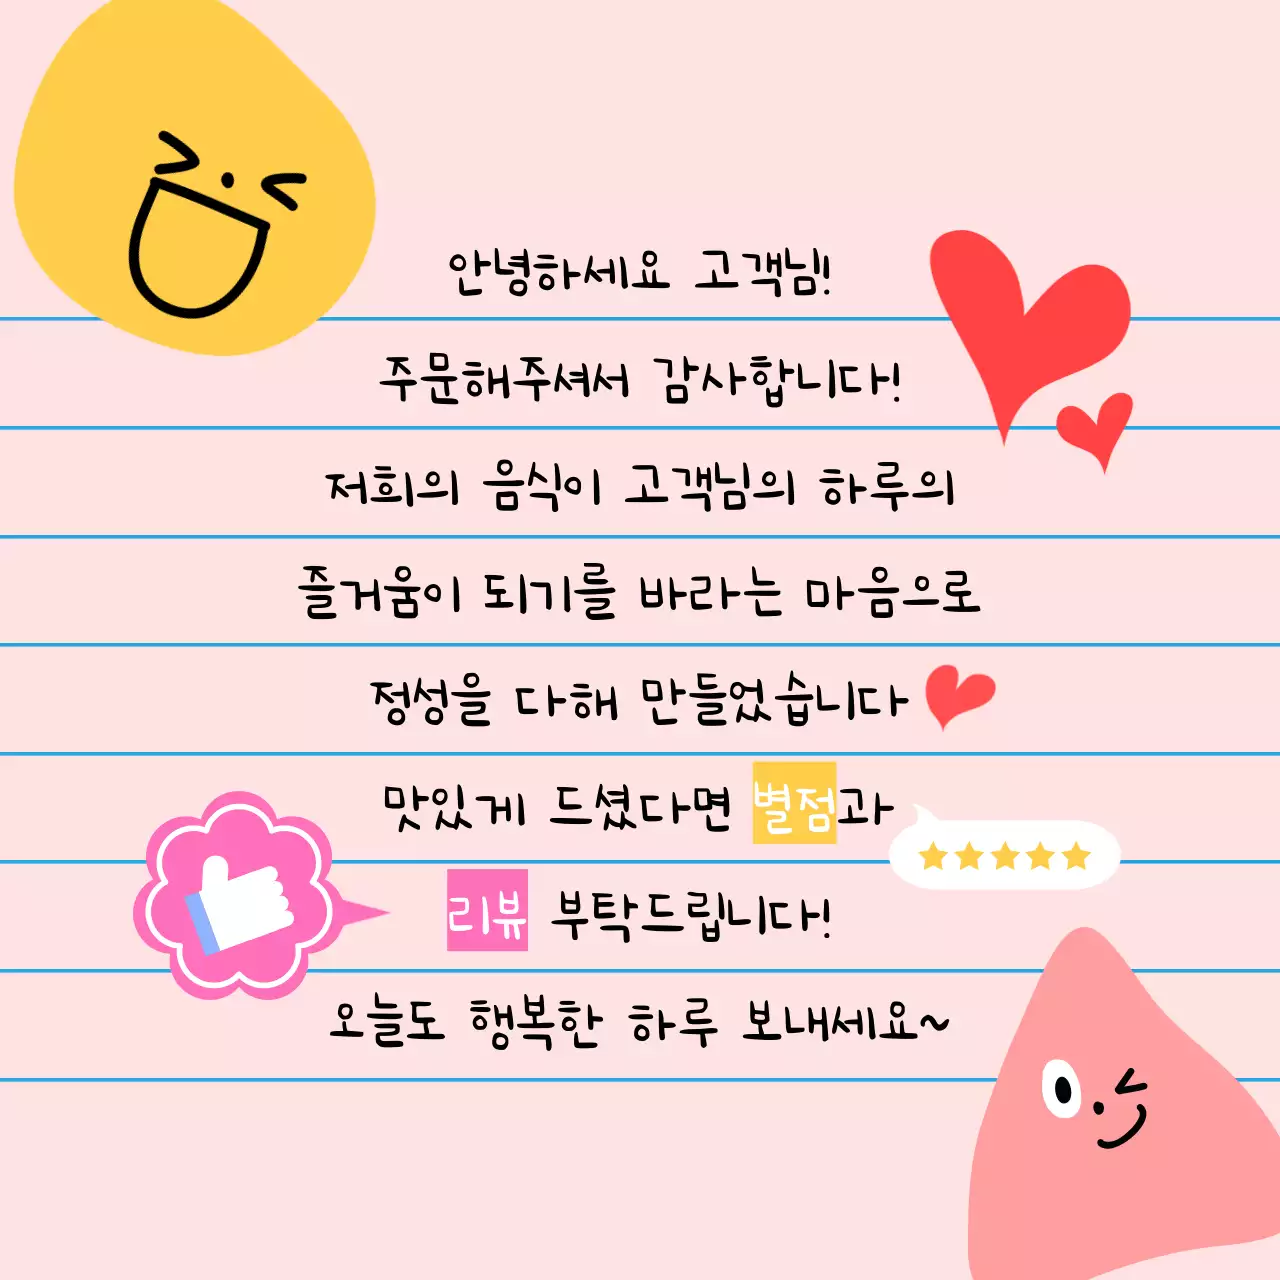 안녕하세요 고객님!
주문해주셔서 감사합니다!
저희의 음식이 고객님의 하루의
즐거움이 되기를 바라는 마음으로
정성을 다해 만들었습니다
맛있게 드셨다면 별점과
리뷰 부탁드립니다!
오늘도 행복한 하루 보내세요~